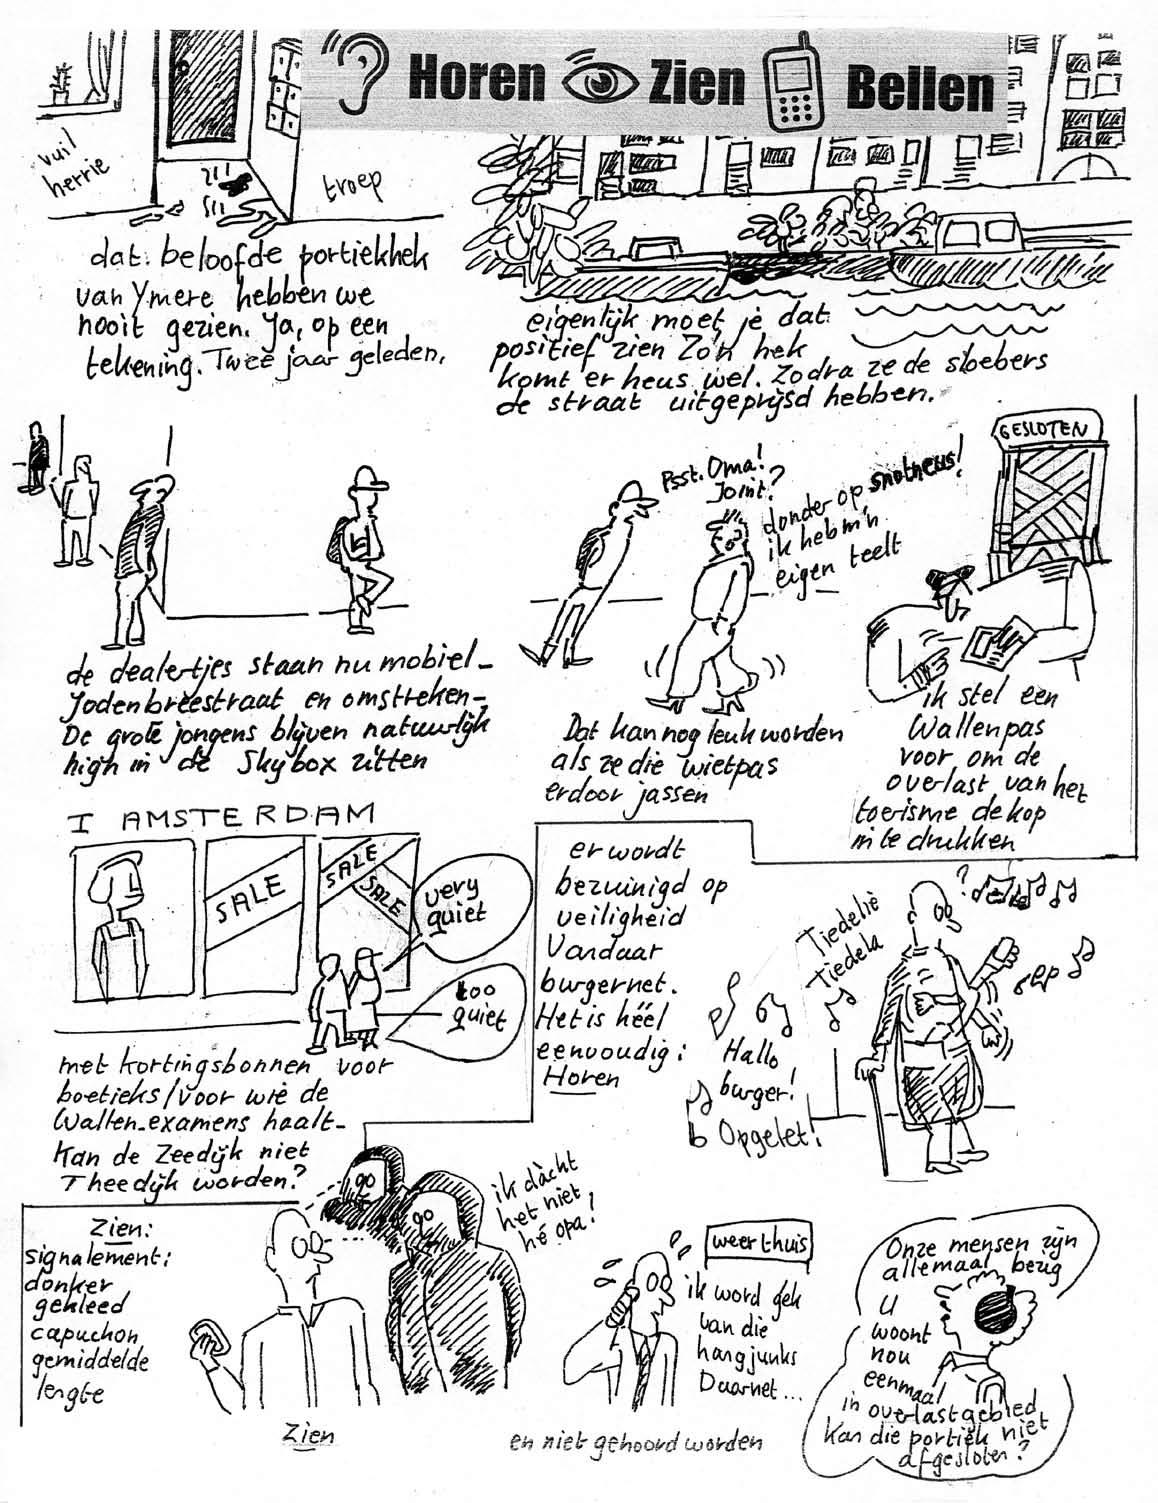 Horen Zien Bellen
vuil
herrie
troep
dat beloofde portiekhek
van Ymere hebben we
nooit gezien. Ja, op een
tekening. Twee jaar geleden.
eigenlijk moet je dat
positief zien Zo'n hek
komt er heus wel. Zodra ze de sloebers
de straat uitgeprijsd hebben.
de dealertjes staan nu mobiel-
Jodenbreestraat en omstreken-
De grote jongens blijven natuurlijk
high in de Skybox zitten
Psst. Oma!
Joint?
donder op snotneus!
ik heb m'n
eigen teelt
Dat kan nog leuk worden
als ze die wietpas
erdoor jassen
GESLOTEN
ik stel een
Wallenpas
voor om de
overlast van het
toerisme de kop
in te drukken
I AMSTERDAM
SALE
SALE
SALE
very
quiet
too
quiet
met kortingsbonnen voor
boetieks/voor wie de
Wallen-examens haalt-
Kan de Zeedijk niet
Theedijk worden?
er wordt
bezuinigd op
veiligheid
Vandaar
burgernet.
Het is héél
eenvoudig:
Horen
Tiedelië
Tiedela
Hallo
burger!
Opgelet!
?
Zien:
signalement:
donker
gekleed
capuchon
gemiddelde
lengte
ik dàcht
het niet
hé opa!
Zien
weer thuis
ik word gek
van die
hangjunks
Daarnet...
en niet gehoord worden
Onze mensen zijn
allemaal bezig
U
woont
nou
eenmaal
in overlastgebied
Kan die portiek niet
afgesloten?